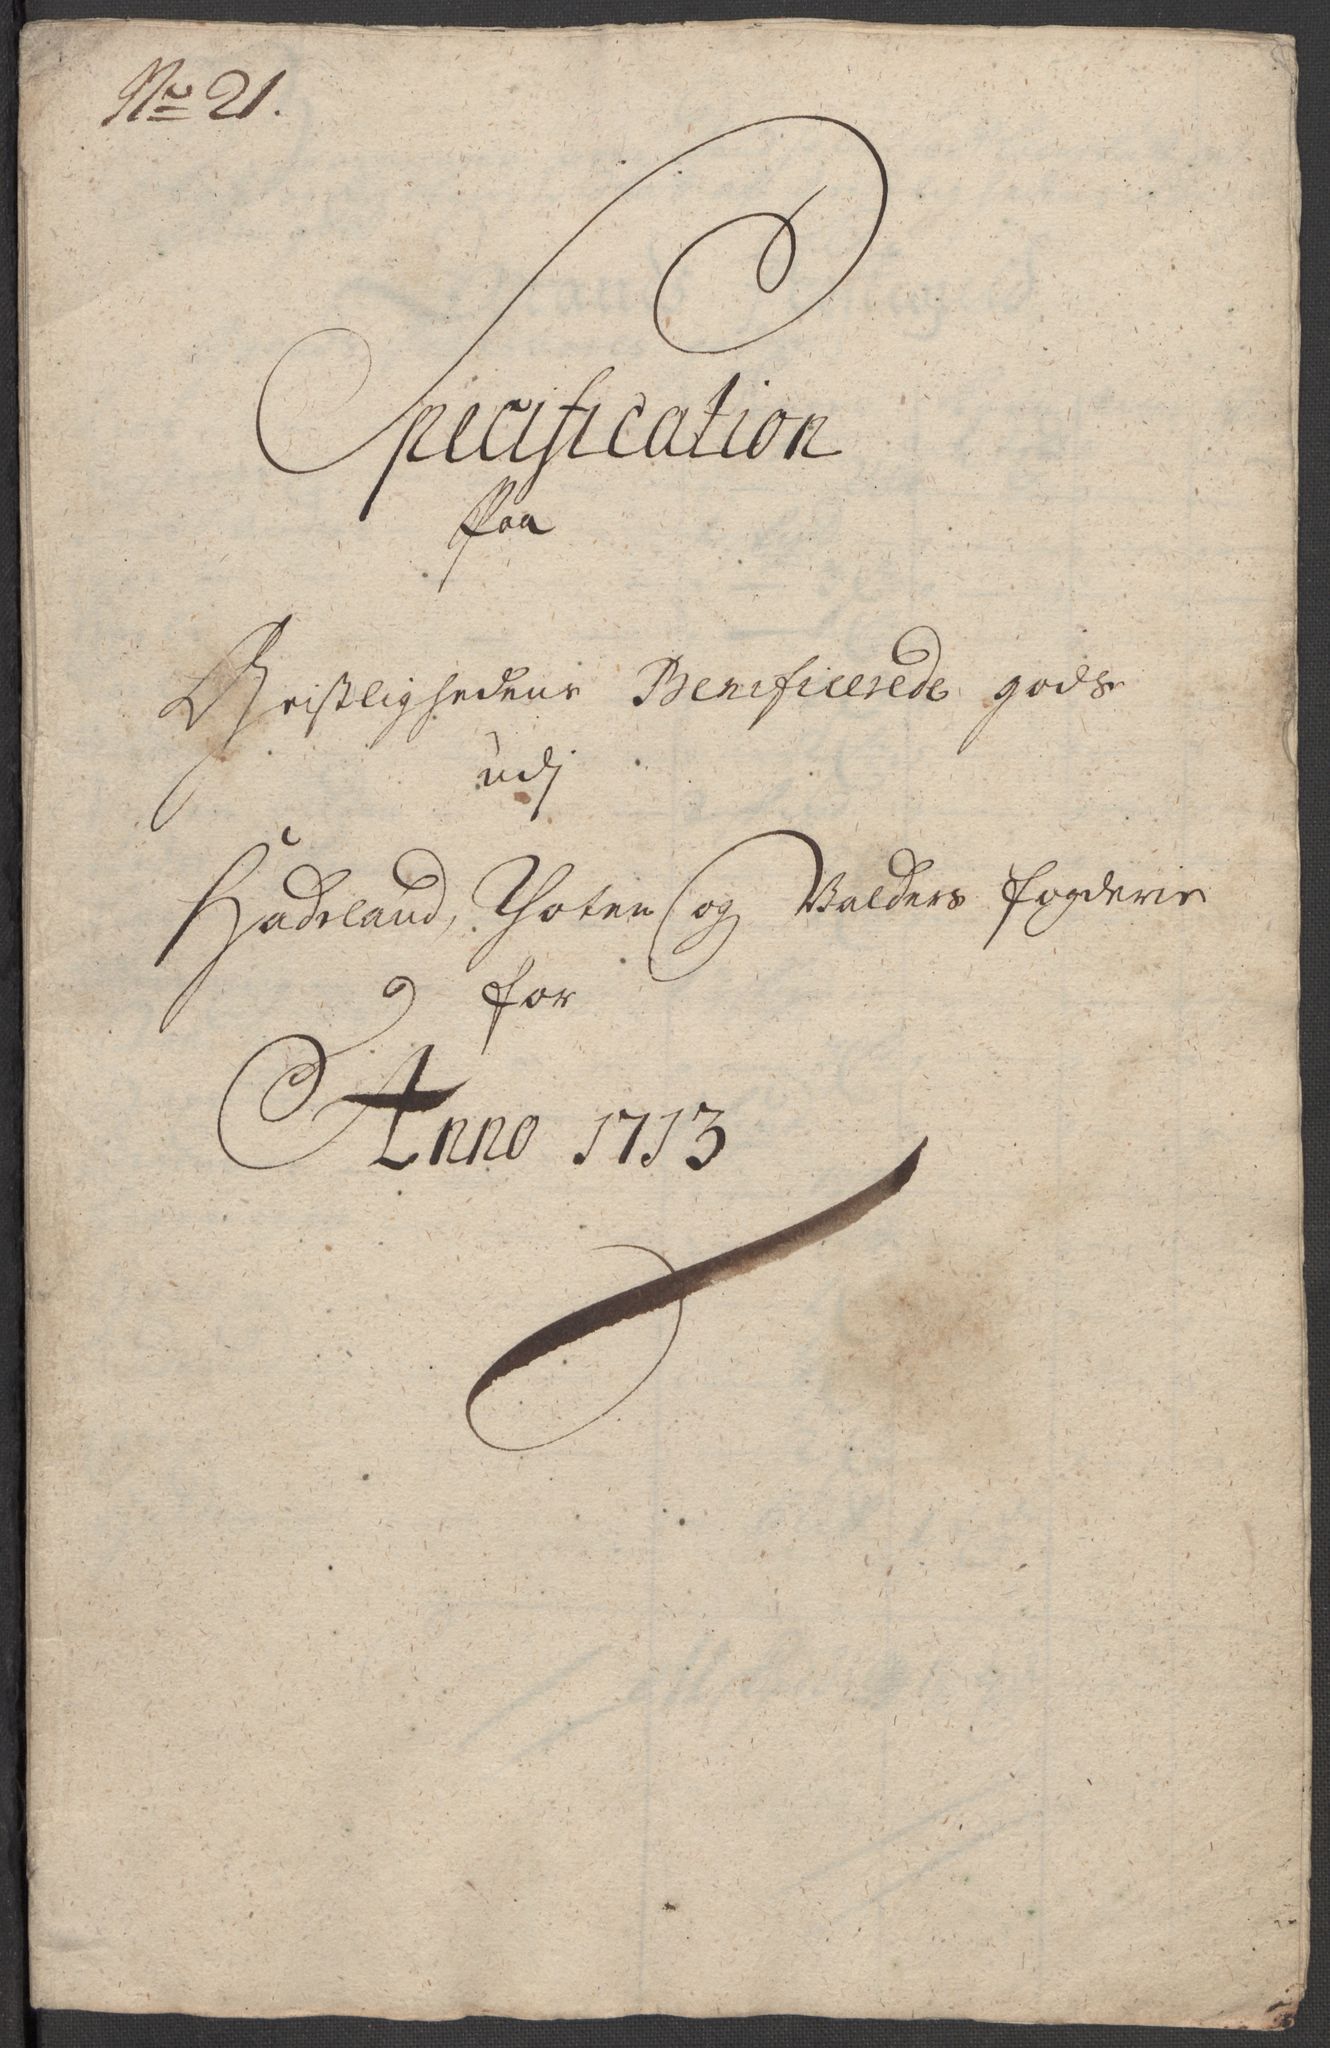 No 21.
Specification
Paa
Geistlighedens Benificerede gods
udj
Hadeland, Thoten og Valders fogderie
for
Anno 1713